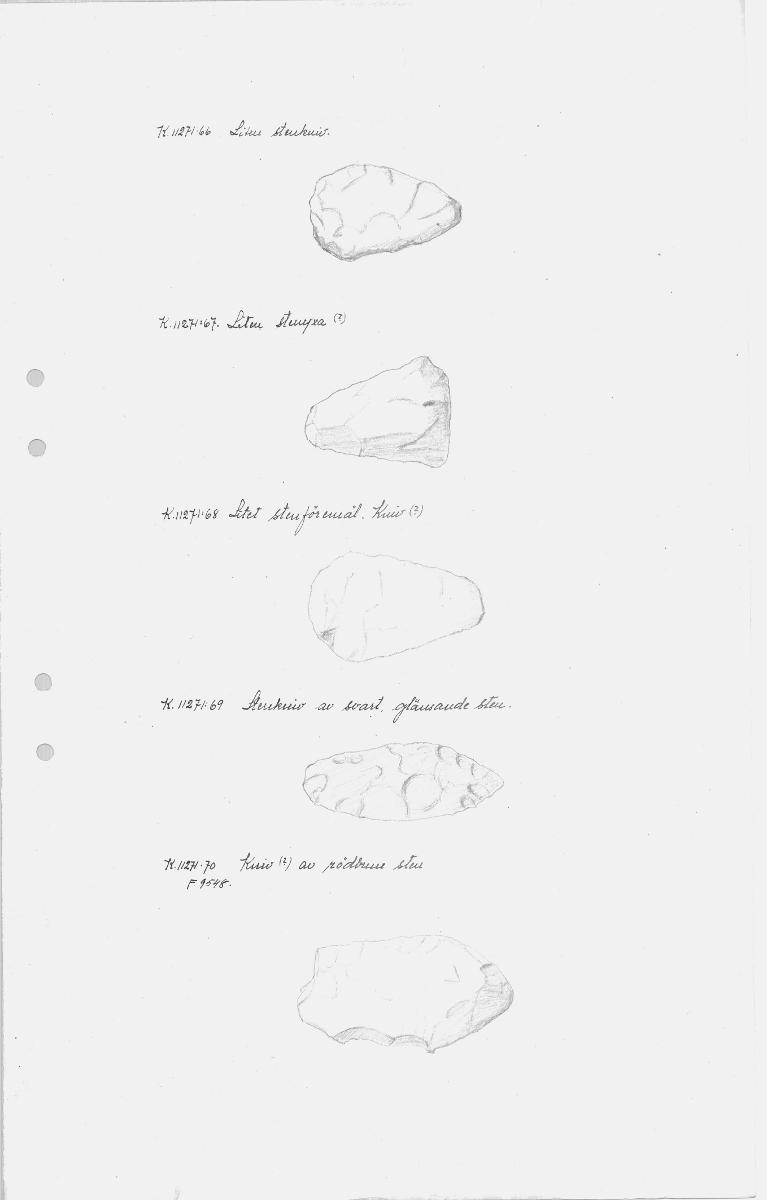 K.11271:66 Liten stenkniv.
K.11271:67. Liten stenyxa (?)
K.11271:68 Litet stenföremål. Kniv (?)
K.11271:69 Stenkniv av svart, glänsande sten.
K.11271:70 Kniv (?) av rödbrun sten
F 9548.